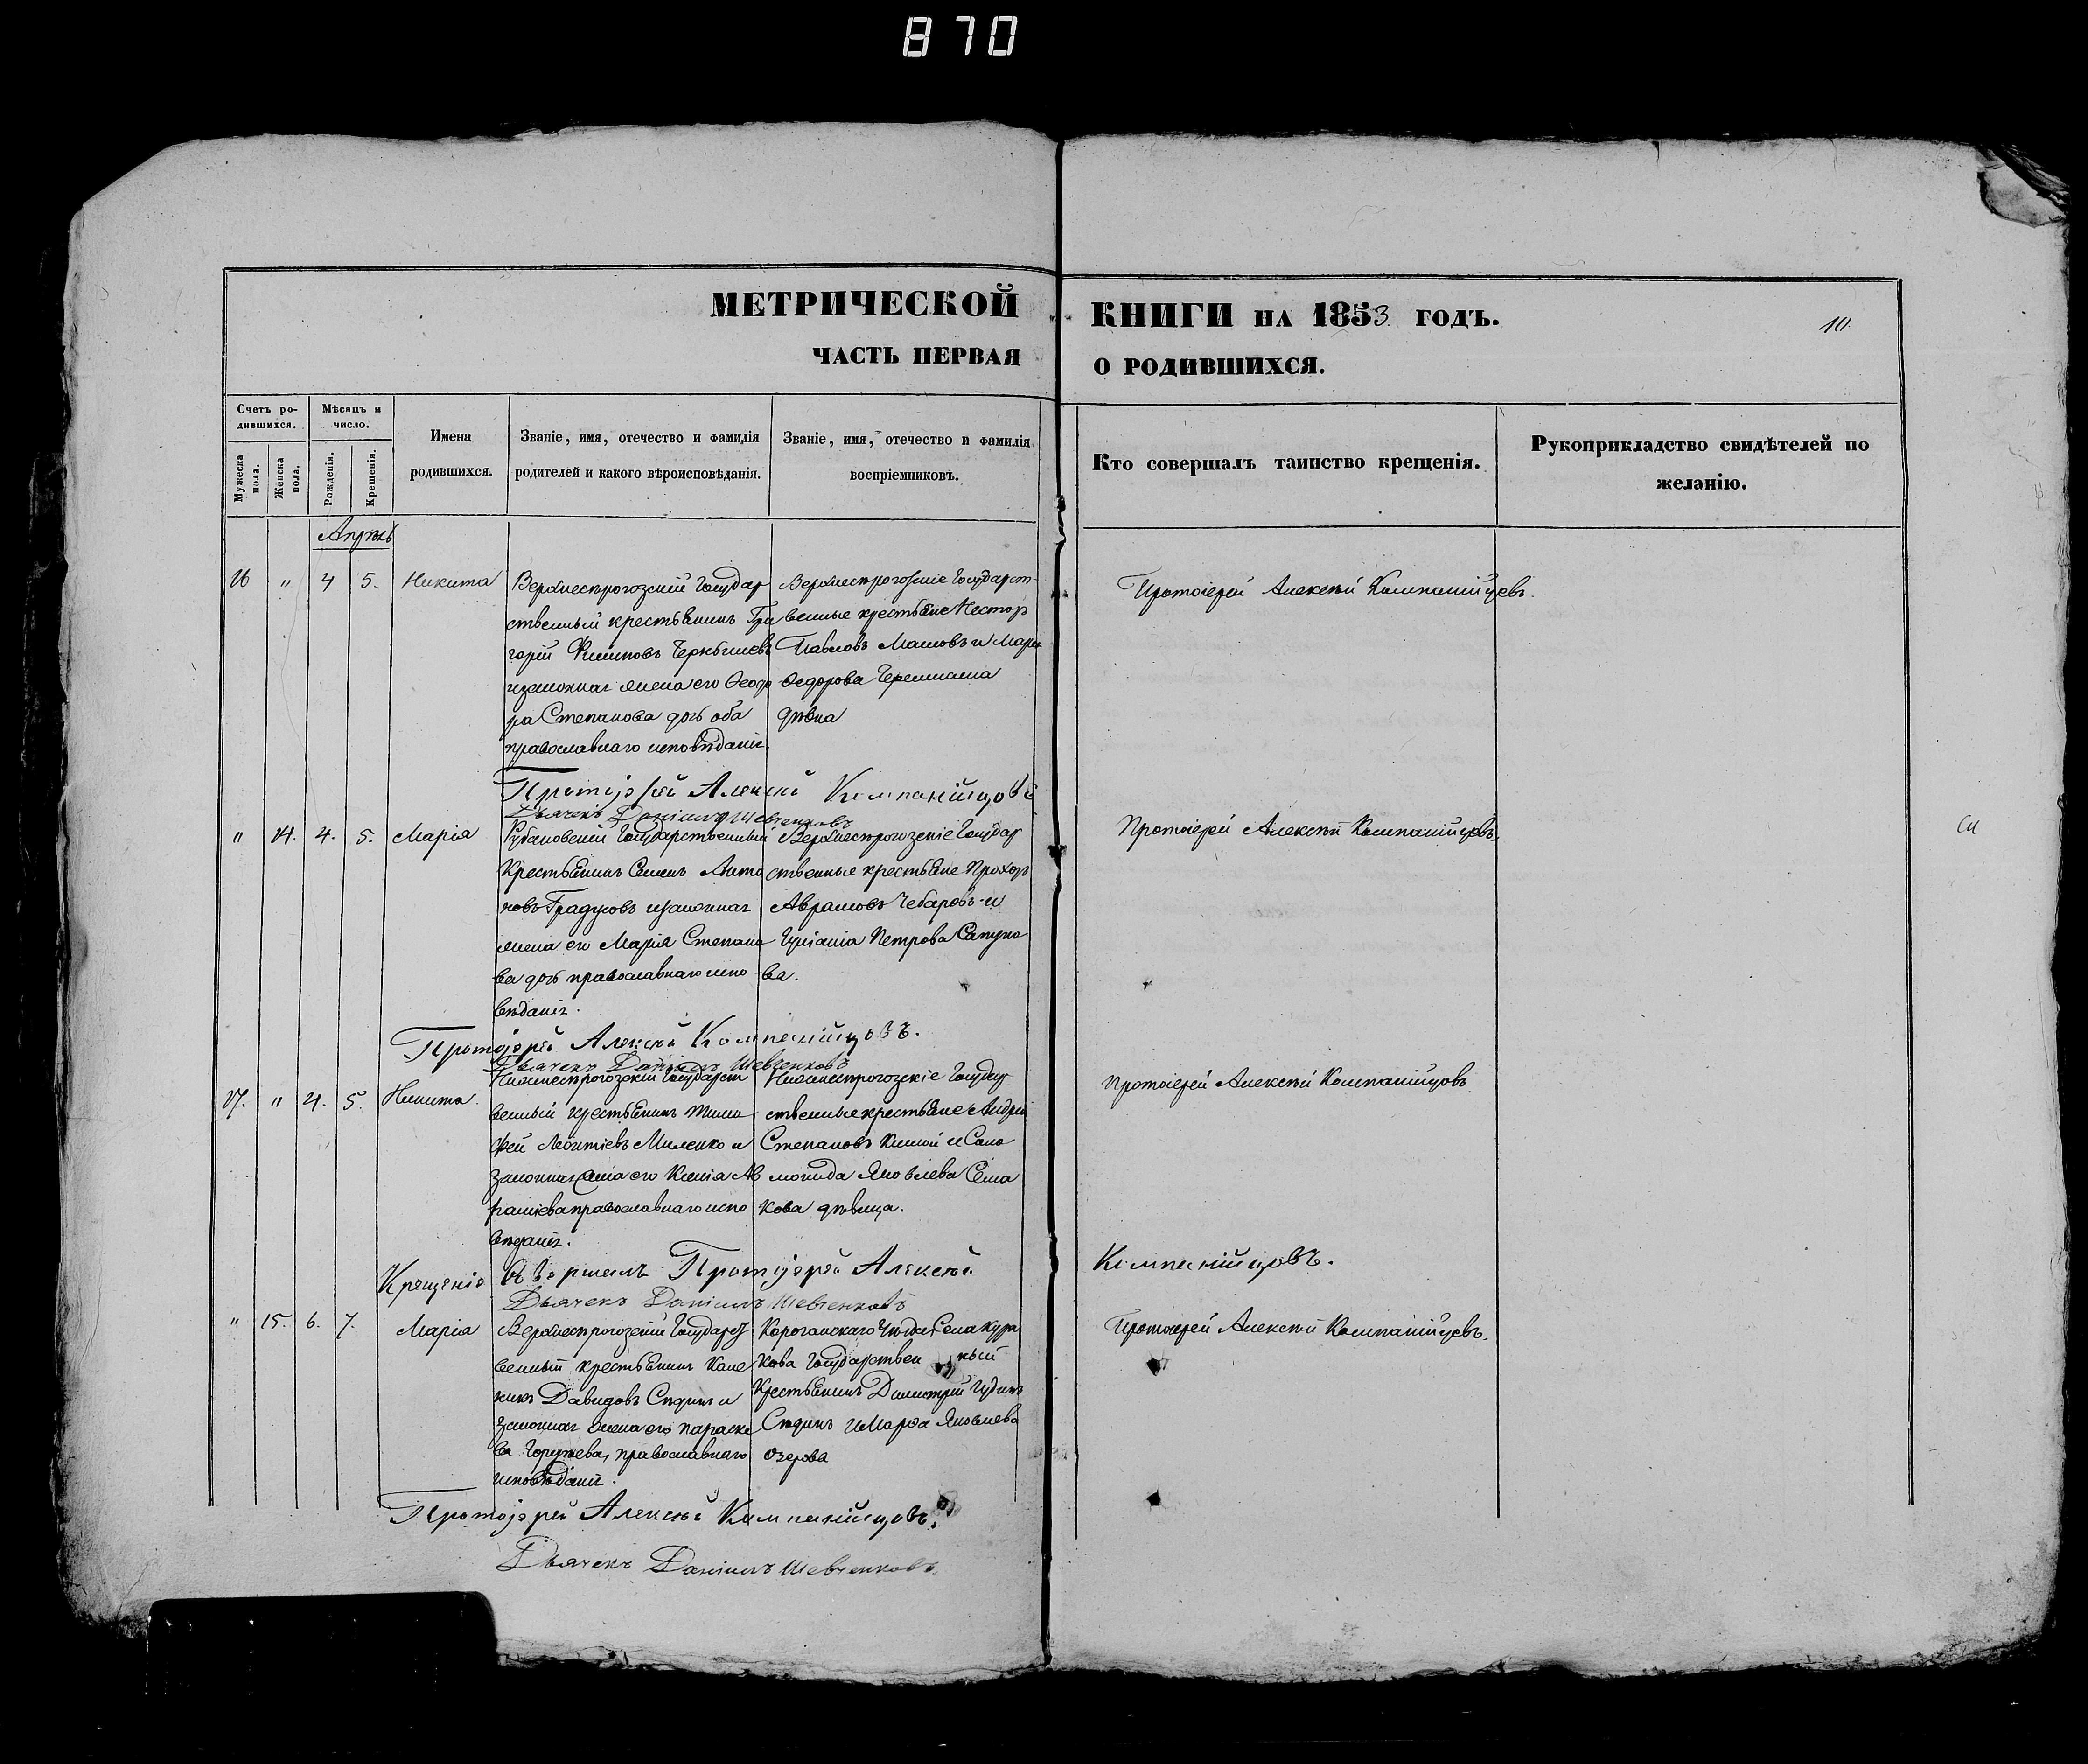 870
МЕТРИЧЕСКОЙ КНИГИ НА 1853 ГОДЪ.
10.
ЧАСТЬ ПЕРВАЯ О РОДИВШИХСЯ.
Счетъ родившихся.
Мужеска пола.
Женска пола.
Мѣсяцъ и число.
Рожденія.
Крещенія.
Имена родившихся.
Званіе, имя, отечество и фамилія родителей и какого вѣроисповѣданія.
Званіе, имя, отечество и фамилія воспріемниковъ.
Кто совершалъ таинство крещенія.
Рукоприкладство свидѣтелей по желанію.
Апрѣль
" 4 5. Никита
Верхнесторогозскій Государ
ственный крестьянинъ Гри
горій
и законная жена его Ѳеодо
ра Степанова дочь оба
православнаго исповѣданія.
Верхнесторогозскіе Государст-
венные крестьяне Нестор
Павловъ и Марія
Ѳедорова
дѣвка
Протоіерей Алексѣй Компанійцевъ.
Протоіерей Алексѣй Компанійцовъ
Дьячекъ Даніилъ Шевченковъ
" 14. 4. 5. Марія
Рубановскій Государственный
крестьянинъ Семенъ Анто
новъ и законная
жена его Марія Степано
ва дочь православнаго испо
вѣданія.
Верхнесторогозскіе Государ
ственные крестьяне Прохоръ
Аврамовъ Чебаровъ и
Петрова Сапуно
ва.
Протоіерей Алексѣй Компанійцовъ.
Протоіерей Алексѣй Компанійцовъ.
Дьячекъ Даніилъ Шевченковъ
17. " 4. 5. Никита
Нижнесторогозскій Государст
венный крестьянинъ Тимо
фей Леонтіевъ Миленко и
законная жена его Ксенія Ав
рамиева православнаго испо
вѣданія.
Нижнесторогозскіе Государ
ственные крестьяне Андрей
Степановъ и Соло
монида Яковлева Сема
кова дѣвица.
Протоіерей Алексѣй Компанійцовъ
Крещеніе совершилъ Протоіерей Алексѣй Компанійцовъ.
Дьячекъ Даніилъ Шевченковъ
" 15. 6. 7. Марія
Верхнесторогозскій Государст
венный крестьянинъ Кале
никъ Давидовъ Сѣдинъ и
законная жена его Параске
ва православнаго
исповѣданія.
Села Кура
кова Государственный
крестьянинъ Димитрій
Сѣдинъ и Марѳа Яковлева
Озерова
Протоіерей Алексѣй Компанійцевъ.
Протоіерей Алексѣй Компанійцовъ.
Дьячекъ Даніилъ Шевченковъ.